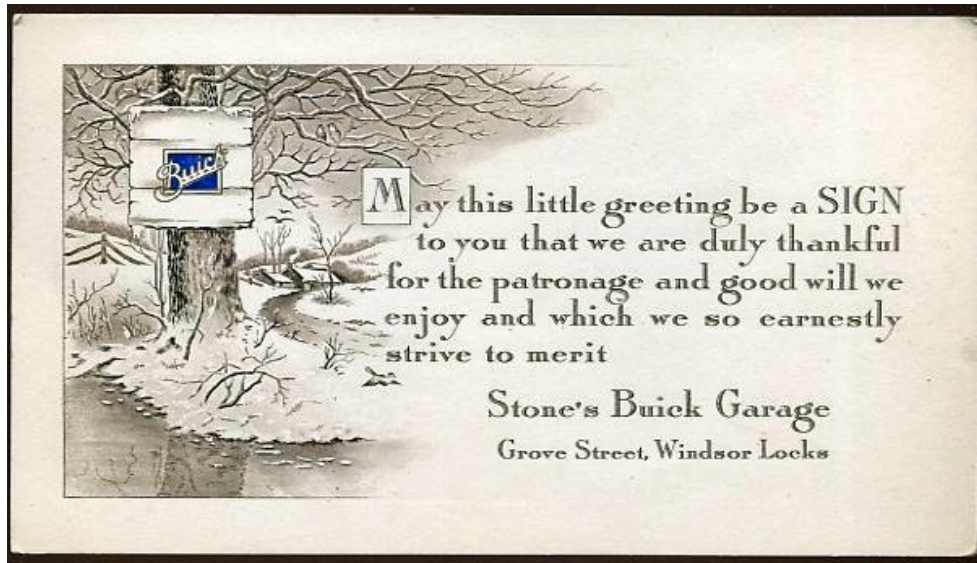 Buick
May this little greeting be a SIGN
to you that we are duly thankful
for the patronage and good will we
enjoy and which we so earnestly
strive to merit
Stone's Buick Garage
Grove Street, Windsor Locks